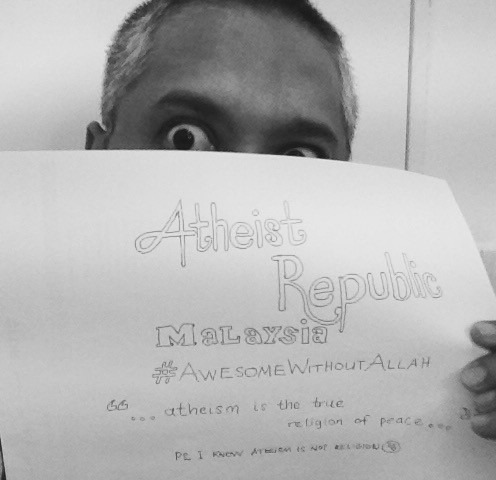 Atheist
Republic
MALAYSIA
#AWESOMEWITHOUTALLAH
“ ... atheism is the true
religion of peace... ”
PS I KNOW ATHEISM IS NOT RELIGION